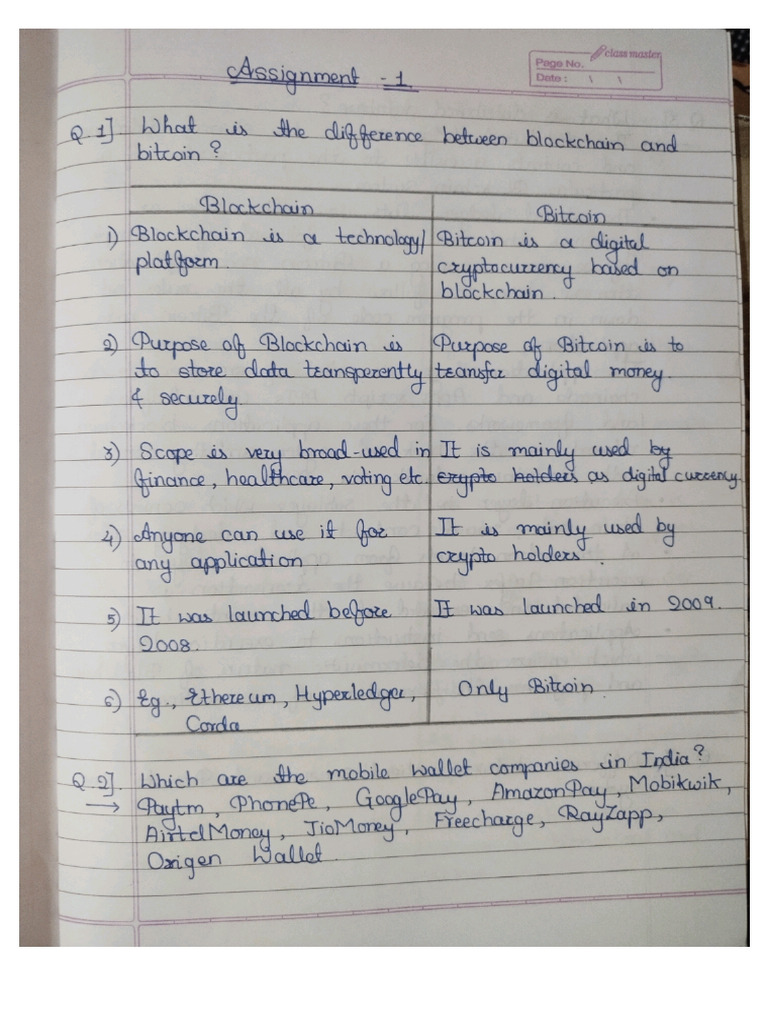 class master
Page No.
Date : \ \
Assignment - 1
Q.1] What is the difference between blockchain and
bitcoin ?
Blockchain Bitcoin
1) Blockchain is a technology/ Bitcoin is a digital
platform. cryptocurrency based on
blockchain.
2) Purpose of Blockchain is Purpose of Bitcoin is to
to store data transperently transfer digital money.
& securely.
3) Scope is very broad-used in It is mainly used by
finance, healthcare, voting etc. crypto holders as digital currency
4) Anyone can use it for It is mainly used by
any application. crypto holders.
5) It was launched before It was launched in 2009.
2008.
6) Eg., Ethereum, Hyperledger, Only Bitcoin.
Corda
Q.2] Which are the mobile wallet companies in India?
→ Paytm, PhonePe, GooglePay, AmazonPay, Mobikwik,
AirtelMoney, JioMoney, Freecharge, RayZapp,
Oxigen Wallet.